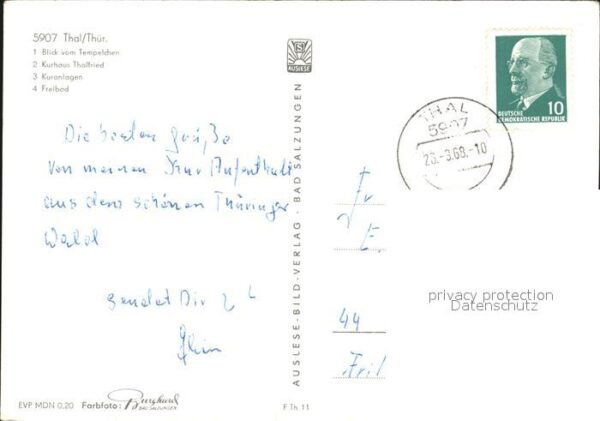 5907 Thal/Thür.
1 Blick vom Tempelchen
2 Kurhaus Thalfried
3 Kuranlagen
4 Freibad
AUSLESE
Die besten Grüße
von meinem Kur Aufenthalt
aus dem schönen Thüringer
Wald
sendet Dir
EVP MDN 0,20 Farbfoto: Burghard
BAD SALZUNGEN
AUSLESE-BILD-VERLAG · BAD SALZUNGEN
F Th. 11
DEUTSCHE 10
DEMOKRATISCHE REPUBLIK
THAL
5907
-3.68.-10
44
privacy protection
Datenschutz